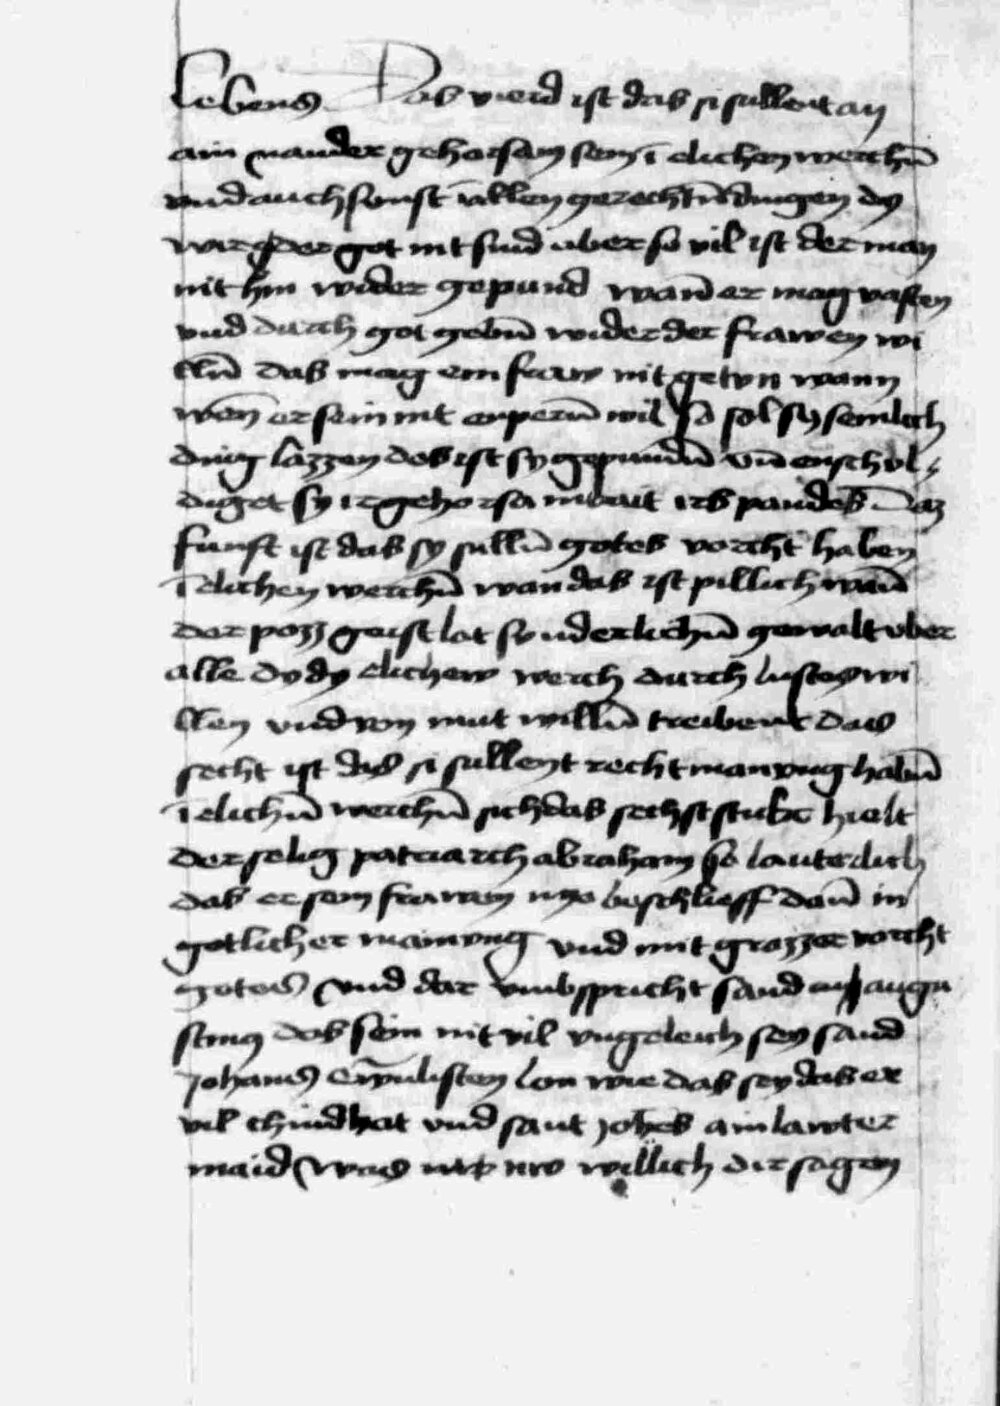 lebens Das vierd ist das si sullent an
ain nander gehorsam sein ī elichen werchn̄
vnd auch sunst ī allen gerechtn̄ dingen dy
wider got nit sind aber so vil ist der man
nit hin wider gepund wan̄ er mag vasten
vnd durch got gebn̄ wider der frawen wi
lln̄ das mag ein fraw nit getvn wann
wen̄ er sein nit enpern̄ wil so sol sy semlich
ding lazzen des ist sy gepundn̄ vn̄ enschul
diget sy ir gehorsamkait irs pandes Daz
funft ist das sy sulln̄ gotes vorcht haben
ī elichen werchn̄ wan das ist pillich wan̄
der pozz geist hat synderlichn̄ gewalt vber
alle dy dy elichew werch durch lustes wi
llen vnd vm mut willn̄ treibent Das
secht ist das si sullent recht manvng habn̄
ī elichn̄ werchn̄ sich das sechst stukc hielt
der selig patriarch abraham so lauterlich
das er sein frawen nye beschlieff dan̄ in
gotlicher mainvng vnd mit grozzer vorcht
gotes vnd dar vmb spricht sand augu
stinus das sein nit vil vngeleich sey sand
Johanns ewn̄listen lon wie das sey das er
vil chind hat vnd sant johēs ain lawter
maid Was nw will ich dir sagen